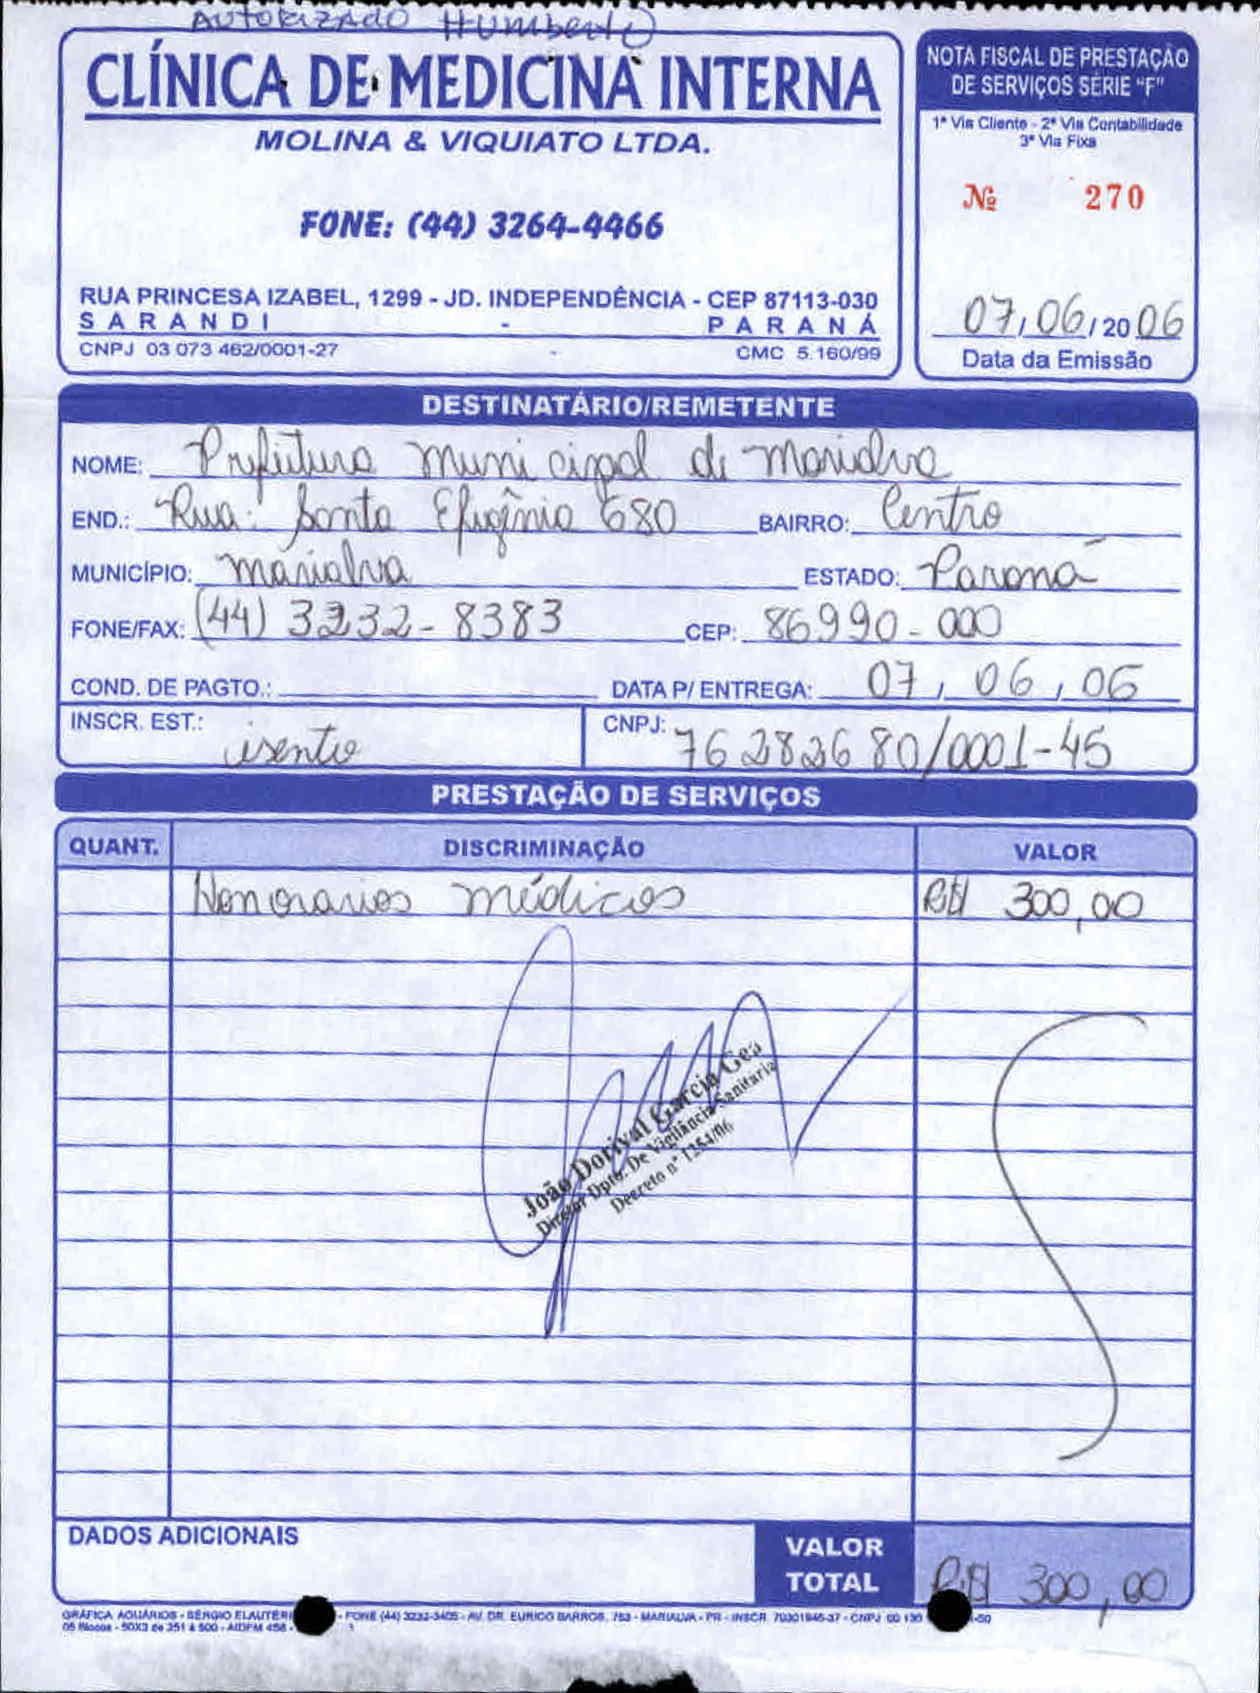 AUTORIZADO Humberto
CLÍNICA DE MEDICINA INTERNA
MOLINA & VIQUIATO LTDA.
FONE: (44) 3264-4466
RUA PRINCESA IZABEL, 1299 - JD. INDEPENDÊNCIA - CEP 87113-030
SARANDI - PARANÁ
CNPJ 03 073 462/0001-27 CMC 5.160/99
NOTA FISCAL DE PRESTAÇÃO
DE SERVIÇOS SÉRIE "F"
1ª Via Cliente - 2ª Via Contabilidade
3ª Via Fixa
Nº 270
07/06/2006
Data da Emissão
DESTINATÁRIO/REMETENTE
NOME: Prefeitura municipal de marialva
END.: Rua: Santa Efigênia 680 BAIRRO: Centro
MUNICÍPIO: marialva ESTADO: Paraná
FONE/FAX: (44) 3232-8383 CEP: 86990-000
COND. DE PAGTO.: DATA P/ ENTREGA: 07/06/06
INSCR. EST.: isento CNPJ: 76282680/0001-45
PRESTAÇÃO DE SERVIÇOS
QUANT. DISCRIMINAÇÃO VALOR
Honorarios médicos R$ 300,00
João Dorival Garcia Gea
Diretor Dpto. De Vigilância Sanitaria
Decreto nº 1254/06
DADOS ADICIONAIS
VALOR
TOTAL R$ 300,00
GRÁFICA AQUÁRIOS - SÉRGIO - FONE (44) 3232-3405 - AV. DR. EURICO BARROS, 753 - MARIALVA - PR - INSCR. 70301946-37 - CNPJ 00 130 -50
05 Blocos - 50X3 de 251 á 500 - AIDFM 458 -